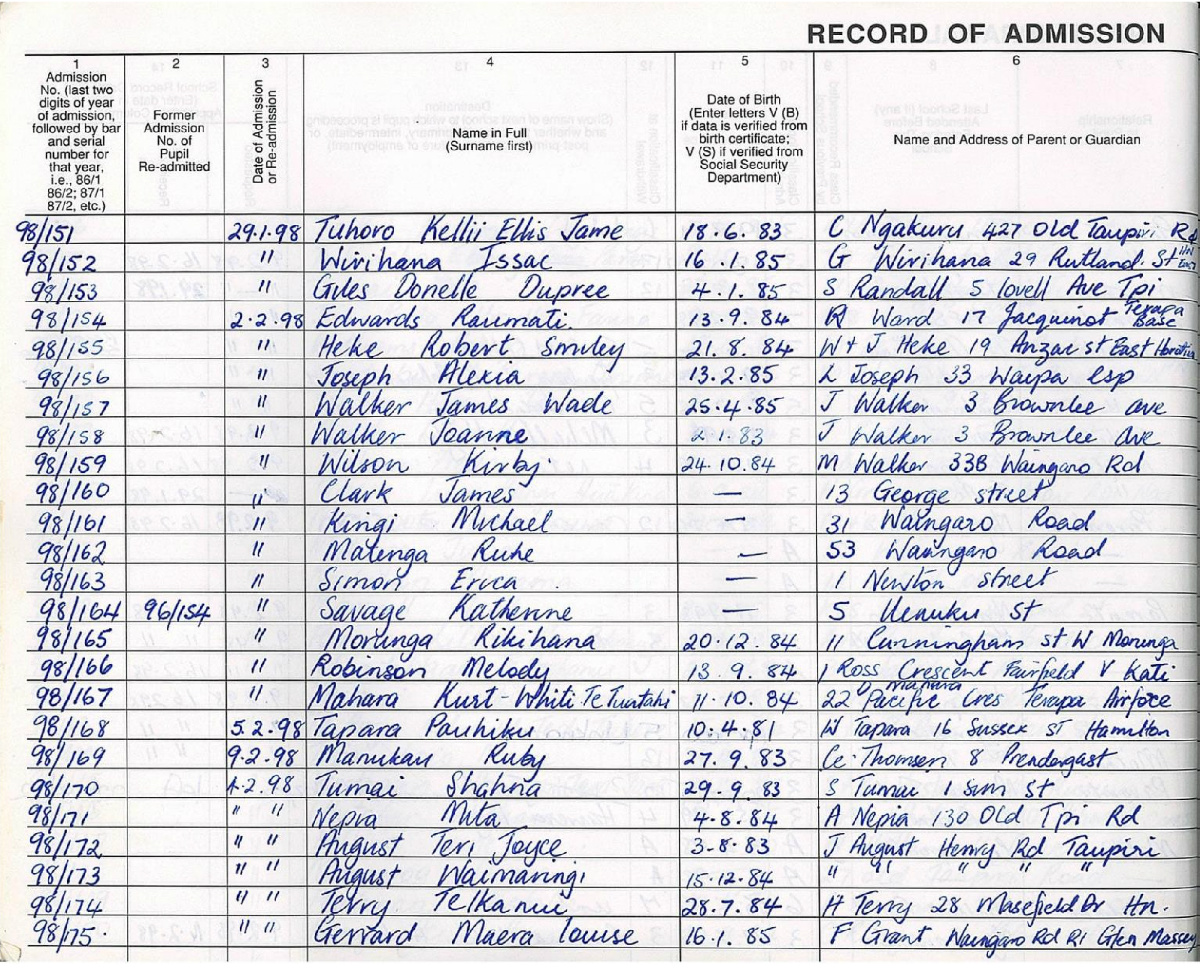 RECORD OF ADMISSION
1 2 3 4 5 6
Admission No. (last two digits of year of admission, followed by bar and serial number for that year, i.e., 86/1 86/2; 87/1 87/2, etc.)
Former Admission No. of Pupil Re-admitted
Date of Admission or Re-admission
Name in Full (Surname first)
Date of Birth (Enter letters V (B) if data is verified from birth certificate; V (S) if verified from Social Security Department)
Name and Address of Parent or Guardian
98/151 29.1.98 Tuhoro Kellii Ellis Jame 18.6.83 C Ngakuru 427 Old Taupiri Rd
98/152 " Wirihana Issac 16.1.85 G Wirihana 29 Rutland St
98/153 " Giles Donelle Dupree 4.1.85 S Randall 5 Lovell Ave Tpi
98/154 2.2.98 Edwards Raumati. 13.9.84 R Ward 17 Jacquinot Terapa Base
98/155 " Heke Robert Smiley 21.8.84 W + J Heke 19 Anzac st East Hamilton
98/156 " Joseph Alexia 13.2.85 L Joseph 33 Waipa Esp
98/157 " Walker James Wade 25.4.85 J Walker 3 Brownlee ave
98/158 " Walker Joanne 2.1.83 J Walker 3 Brownlee Ave
98/159 " Wilson Kirby. 24.10.84 M Walker 33B Waingaro Rd
98/160 " Clark James — 13 George street
98/161 " Kingi Michael — 31 Waingaro Road
98/162 " Matenga Ruhe — 53 Waingaro Road
98/163 " Simon Erica — 1 Newton street
98/164 96/154 " Savage Katherine — 5 Uenuku st
98/165 " Morunga Rikihana 20.12.84 11 Cunningham st W Morunga
98/166 " Robinson Melody 13.9.84 1 Ross Crescent Fairfield V Kati
98/167 " Mahara Kurt-Whiti Te Tuatahi 11.10.84 22 Pacific Cres Terapa Airforce
Mahara
98/168 5.2.98 Tapara Pauhiku 10.4.81 W Tapara 16 Sussex ST Hamilton
98/169 9.2.98 Manukau Ruby 27.9.83 Ce Thomsen 8 Prendergast
98/170 4.2.98 Tumai Shahna 29.9.83 S Tumai 1 Sim st
98/171 " " Nepia Mita 4.8.84 A Nepia 130 Old Tpi Rd
98/172 " " August Teri Joyce 3.8.83 J August Henry Rd Taupiri
98/173 " " August Waimaringi 15.12.84 " " " " "
98/174 " " Terry Teikanui 28.7.84 H Terry 28 Masefield Dr Hn.
98/175. " " Gerrard Maera Louise 16.1.85 F Grant Waingaro Rd R1 Glen Massey